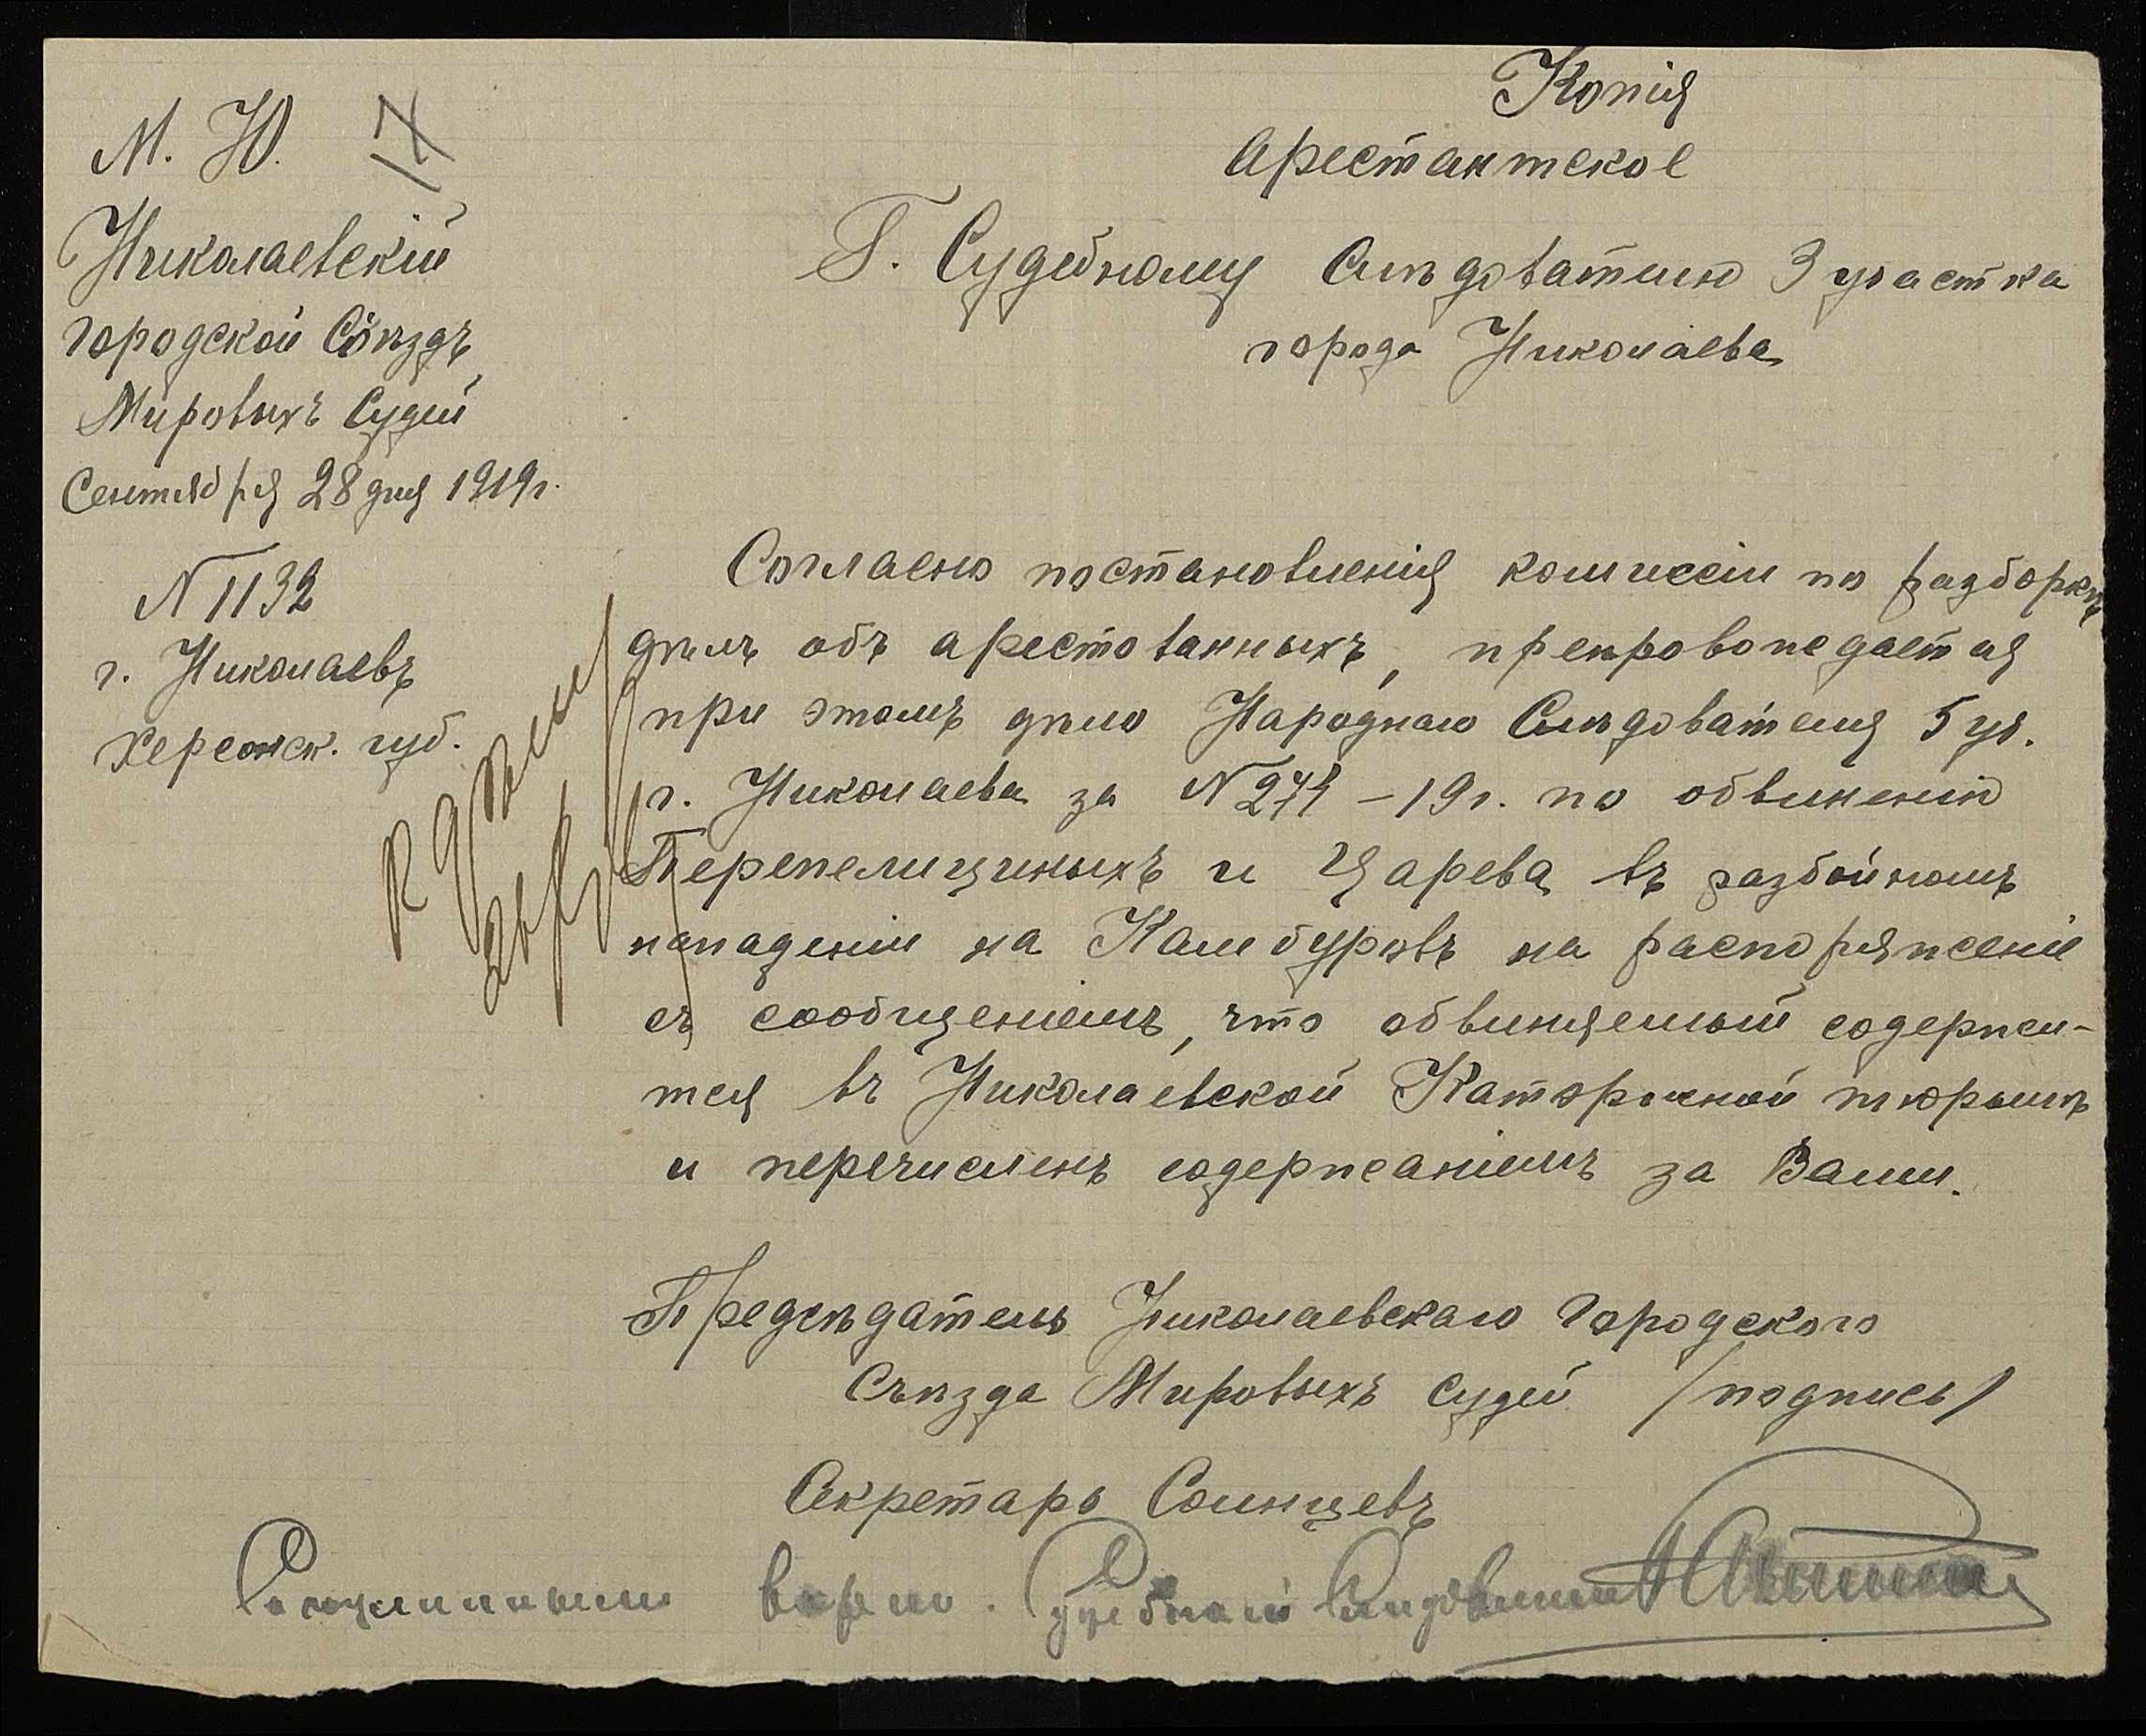 Копія
Арестантское
М. Ю. 17
Николаевскій
Городской Съѣздъ
Мировыхъ Судей
Сентября 28 дня 1919 г.
N 1132
г. Николаевъ
Херсонск. губ.
Г. Судебному Слѣдователю 3 участка
города Николаева
Согласно постановленія комиссіи по разборкѣ
дѣлъ объ арестованныхъ, препровождается
при этомъ дѣло Народнаго Слѣдователя 5 уч.
г. Николаева за N 274 – 19 г. по обвиненію
Перепелициныхъ и Царева въ разбойномъ
нападеніи на Камбуровъ на распоряженіе
съ сообщеніемъ, что обвиняемый содержи-
тся въ Николаевской Каторжной тюрьмѣ
и перечисленъ содержаніемъ за Вами.
К дѣлу
Предсѣдатель Николаевскаго Городского
Съѣзда Мировыхъ Судей /подпись/
Секретарь Солнцевъ
С подлиннымъ вѣрно. Судебный Слѣдователь